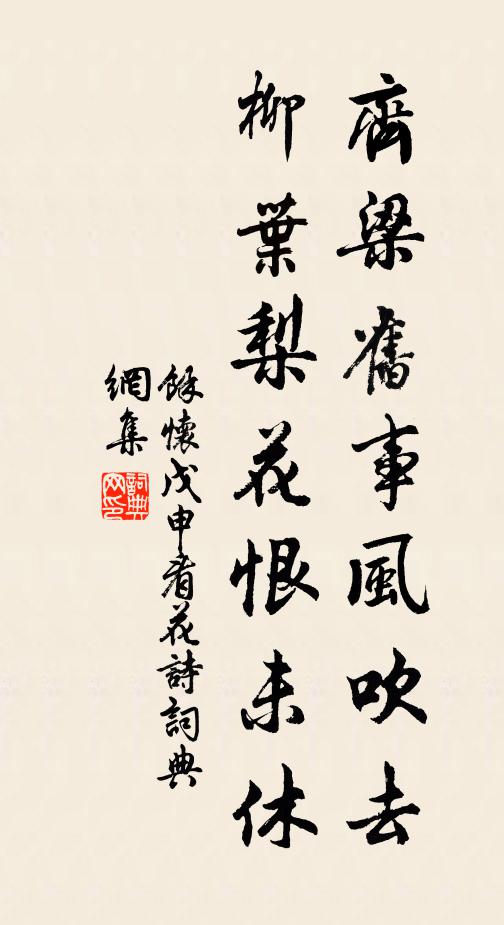 齊梁舊事風吹去
柳葉梨花恨未休
餘懷戊申看花詩詞典
網集
詞典
网印